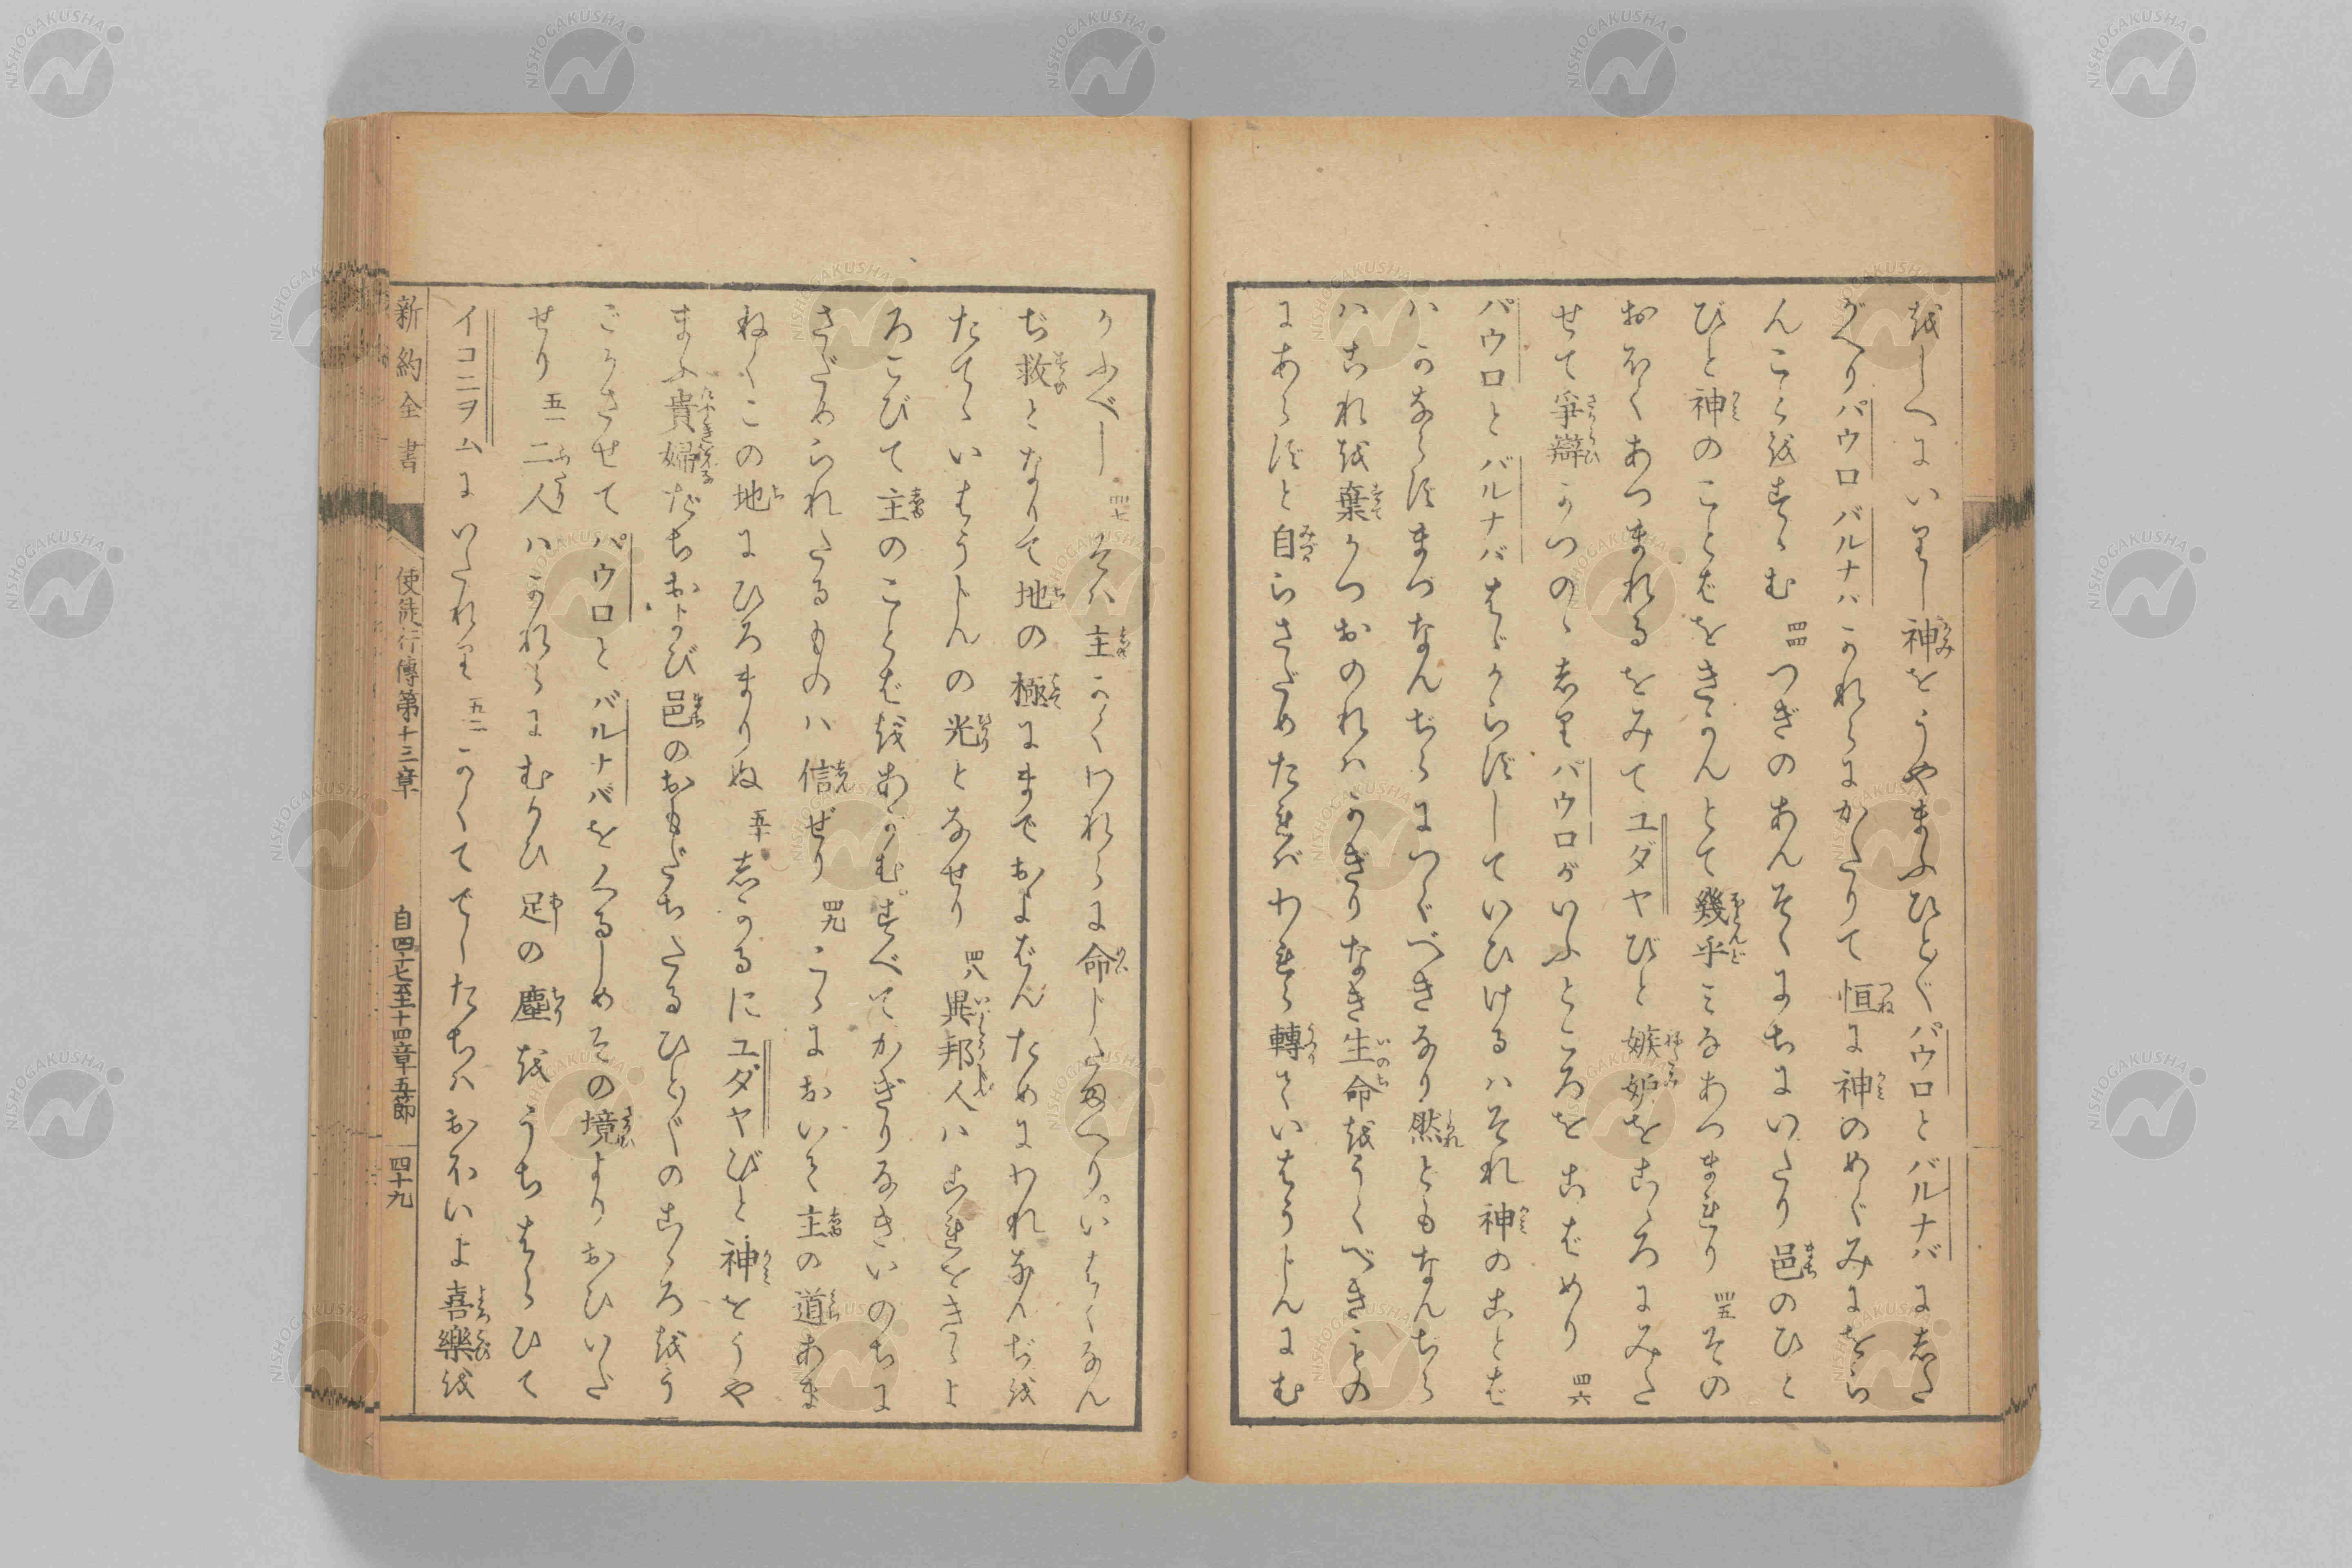 をしへにいりし神をうやまふひとぐパウロとバルナバにした
がへりパウロバルナバかれらにかたりて恒に神のめぐみにをら
んことをすゝむ 四四 つぎのあんそくにちにいたり邑のひと
びと神のことばをきかんとて幾乎みなあつまれり 四五 その
おほくあつまれるをみてユダヤびと嫉妬をこゝろにみた
せて爭辯かつのゝしりパウロがいふところをこばめり 四六
パウロとバルナバはゞからずしていひけるハそれ神のことば
ハかならずまづなんぢらにつぐべきなり然どもなんぢら
ハこれを棄かつおのれハかぎりなき生命をうくべきもの
にあらずと自らさだめたればわれら轉ていはうじんにむ
かふべし 四七 そハ主かくわれらに命じたまへり。いはくなん
ぢ救となりて地の極にまでおよばんためにわれなんぢを
たてゝいはうじんの光となせり 四八 異邦人ハこれをきゝよ
ろこびて主のことばをあがむ。すべてかぎりなきいのちに
さだめられたるものハ信ぜり 四九 こゝにおいて主の道あま
ねくこの地にひろまりぬ 五十 しかるにユダヤびと神をうや
まふ貴婦たちおよび邑のおもだちたるひとぐのこゝろをう
ごかさせてパウロとバルナバをくるしめその境よりおひいだ
せり 五一 二人ハかれらにむかひ足の塵をうちはらひて
イコニヲムにいたれり 五二 かくてでしたちハおほいよ喜樂を
新約全書 使徒行傳第十三章 自四十七至十四章五節 四十九
NISHOGAKUSHA